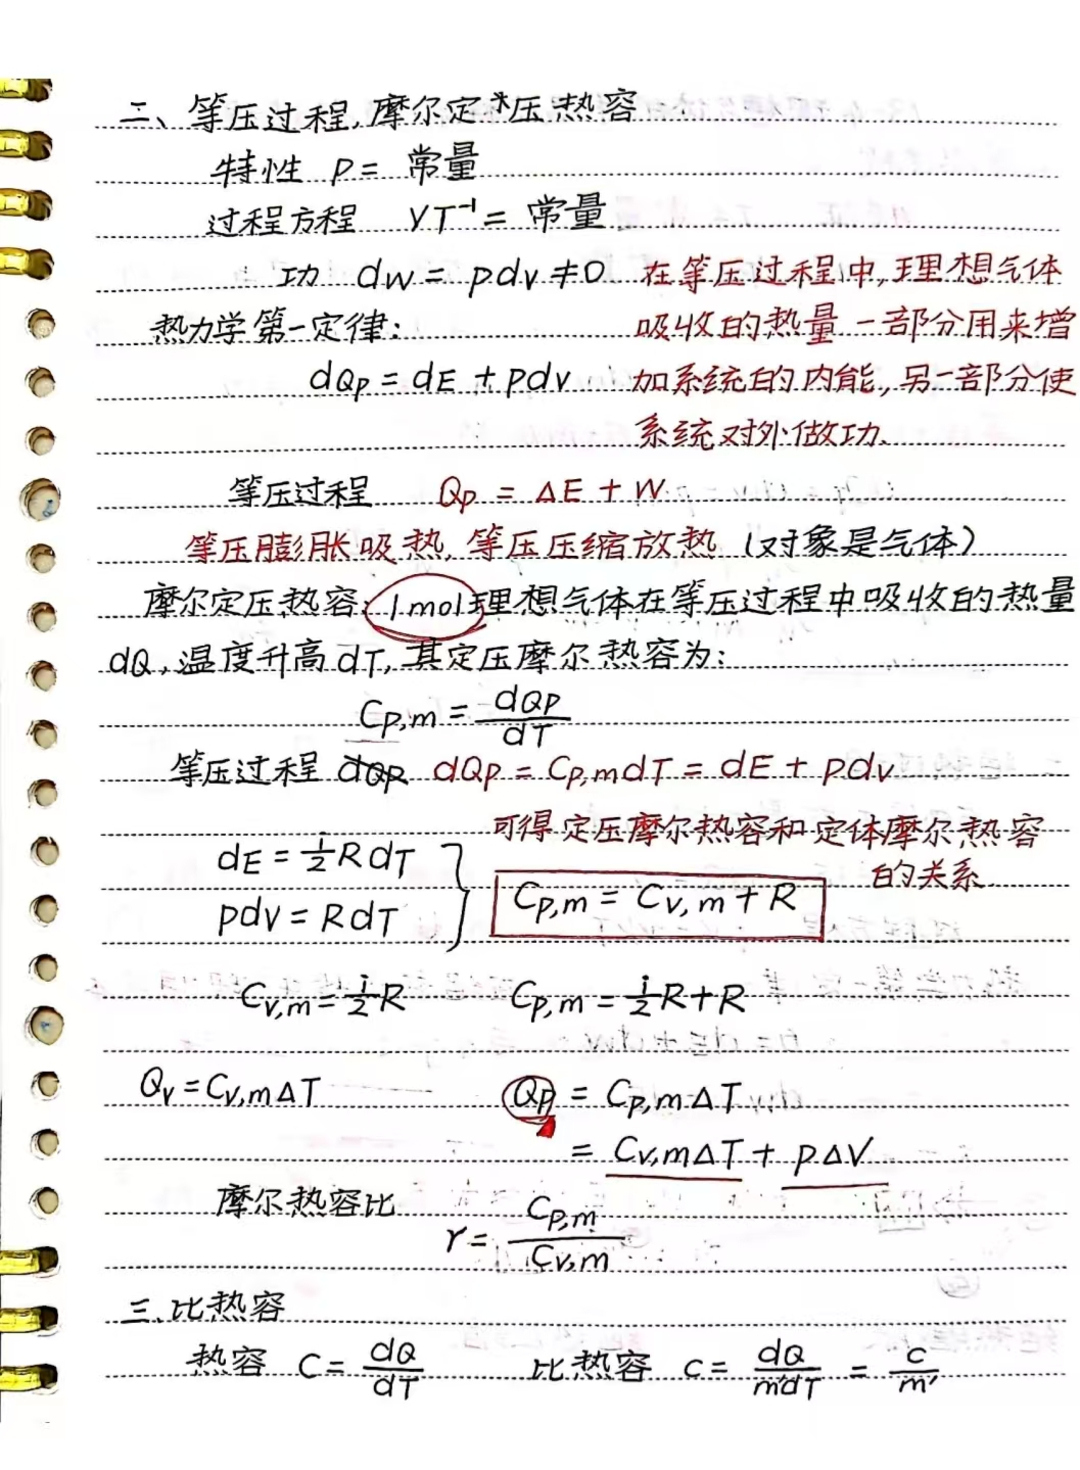 二、等压过程,摩尔定压热容
特性 p = 常量
过程方程 VT⁻¹ = 常量
功 dW = pdV ≠ 0 在等压过程中,理想气体
热力学第一定律: 吸收的热量一部分用来增
dQp = dE + PdV 加系统的内能,另一部分使
系统对外做功.
等压过程 Qp = ΔE + W
等压膨胀吸热,等压压缩放热 (对象是气体)
摩尔定压热容: 1mol理想气体在等压过程中吸收的热量
dQ,温度升高dT,其定压摩尔热容为:
Cp,m = dQp/dT
等压过程 dQp = Cp,mdT = dE + pdv
可得定压摩尔热容和定体摩尔热容
的关系
dE = i/2 RdT
pdV = RdT Cp,m = Cv,m + R
Cv,m = i/2 R Cp,m = i/2 R + R
Qv = Cv,mΔT Qp = Cp,mΔT
= Cv,mΔT + pΔV
摩尔热容比 γ = Cp,m/Cv,m
三、比热容
热容 C = dQ/dT 比热容 c = dQ/m'dT = c/m'